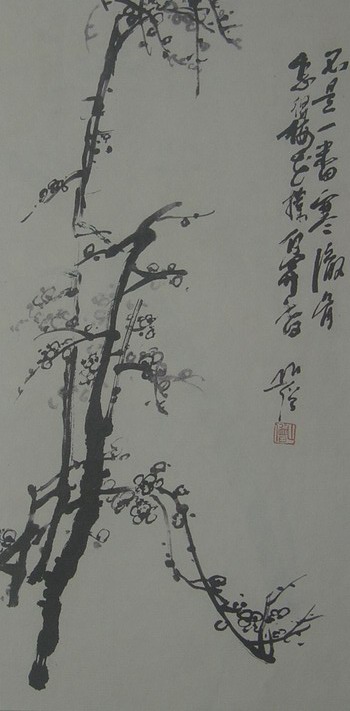 不是一番寒澈骨
怎得梅花撲鼻香